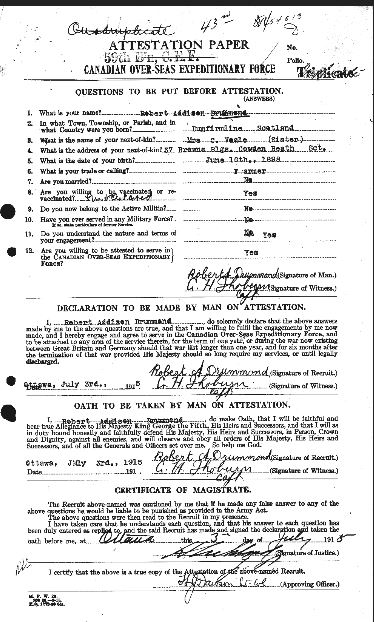 Quadruplicate 43rd
ATTESTATION PAPER
No.
59th Btn. C.E.F.
Folio.
CANADIAN OVER-SEAS EXPEDITIONARY FORCE
Triplicate
QUESTIONS TO BE PUT BEFORE ATTESTATION.
(ANSWERS)
1. What is your name? Robert Addison Drummond
2. In what Town, Township, or Parish, and in
what Country were you born? Dunfirmline Scotland
3. What is the name of your next-of-kin? Mrs C. (Sister)
4. What is the address of your next-of-kin? 57 Bldgs. Cowden Beath Sct.
5. What is the date of your birth? June 10th., 1888
6. What is your trade or calling? Farmer
7. Are you married? No
8. Are you willing to be vaccinated or re-
vaccinated? Yes
9. Do you now belong to the Active Militia? No
10. Have you ever served in any Military Force? No
If so, state particulars of former Service.
11. Do you understand the nature and terms of
your engagement? Yes
12. Are you willing to be attested to serve in
the CANADIAN OVER-SEAS EXPEDITIONARY
FORCE? Yes
Robert A Drummond (Signature of Man.)
(Signature of Witness.)
DECLARATION TO BE MADE BY MAN ON ATTESTATION.
I, Robert Addison Drummond, do solemnly declare that the above answers
made by me to the above questions are true, and that I am willing to fulfil the engagements by me now
made, and I hereby engage and agree to serve in the Canadian Over-Seas Expeditionary Force, and
to be attached to any arm of the service therein, for the term of one year, or during the war now existing
between Great Britain and Germany should that war last longer than one year, and for six months after
the termination of that war provided His Majesty should so long require my services, or until legally
discharged.
Robert A Drummond (Signature of Recruit.)
Ottawa, July 3rd., 1915 (Signature of Witness.)
OATH TO BE TAKEN BY MAN ON ATTESTATION.
I, Robert Addison Drummond, do make Oath, that I will be faithful and
bear true Allegiance to His Majesty King George the Fifth, His Heirs and Successors, and that I will as
in duty bound honestly and faithfully defend His Majesty, His Heirs and Successors, in Person, Crown
and Dignity, against all enemies, and will observe and obey all orders of His Majesty, His Heirs and
Successors, and of all the Generals and Officers set over me. So help me God.
Robert A Drummond (Signature of Recruit.)
Ottawa, July 3rd., 1915
Date 191 (Signature of Witness.)
CERTIFICATE OF MAGISTRATE.
The Recruit above-named was cautioned by me that if he made any false answer to any of the
above questions he would be liable to be punished as provided in the Army Act.
The above questions were then read to the Recruit in my presence.
I have taken care that he understands each question, and that his answer to each question has
been duly entered as replied to, and the said Recruit has made and signed the declaration and taken the
oath before me, at Ottawa this 3 day of July 1915
(Signature of Justice.)
I certify that the above is a true copy of the Attestation of the above-named Recruit.
(Approving Officer.)